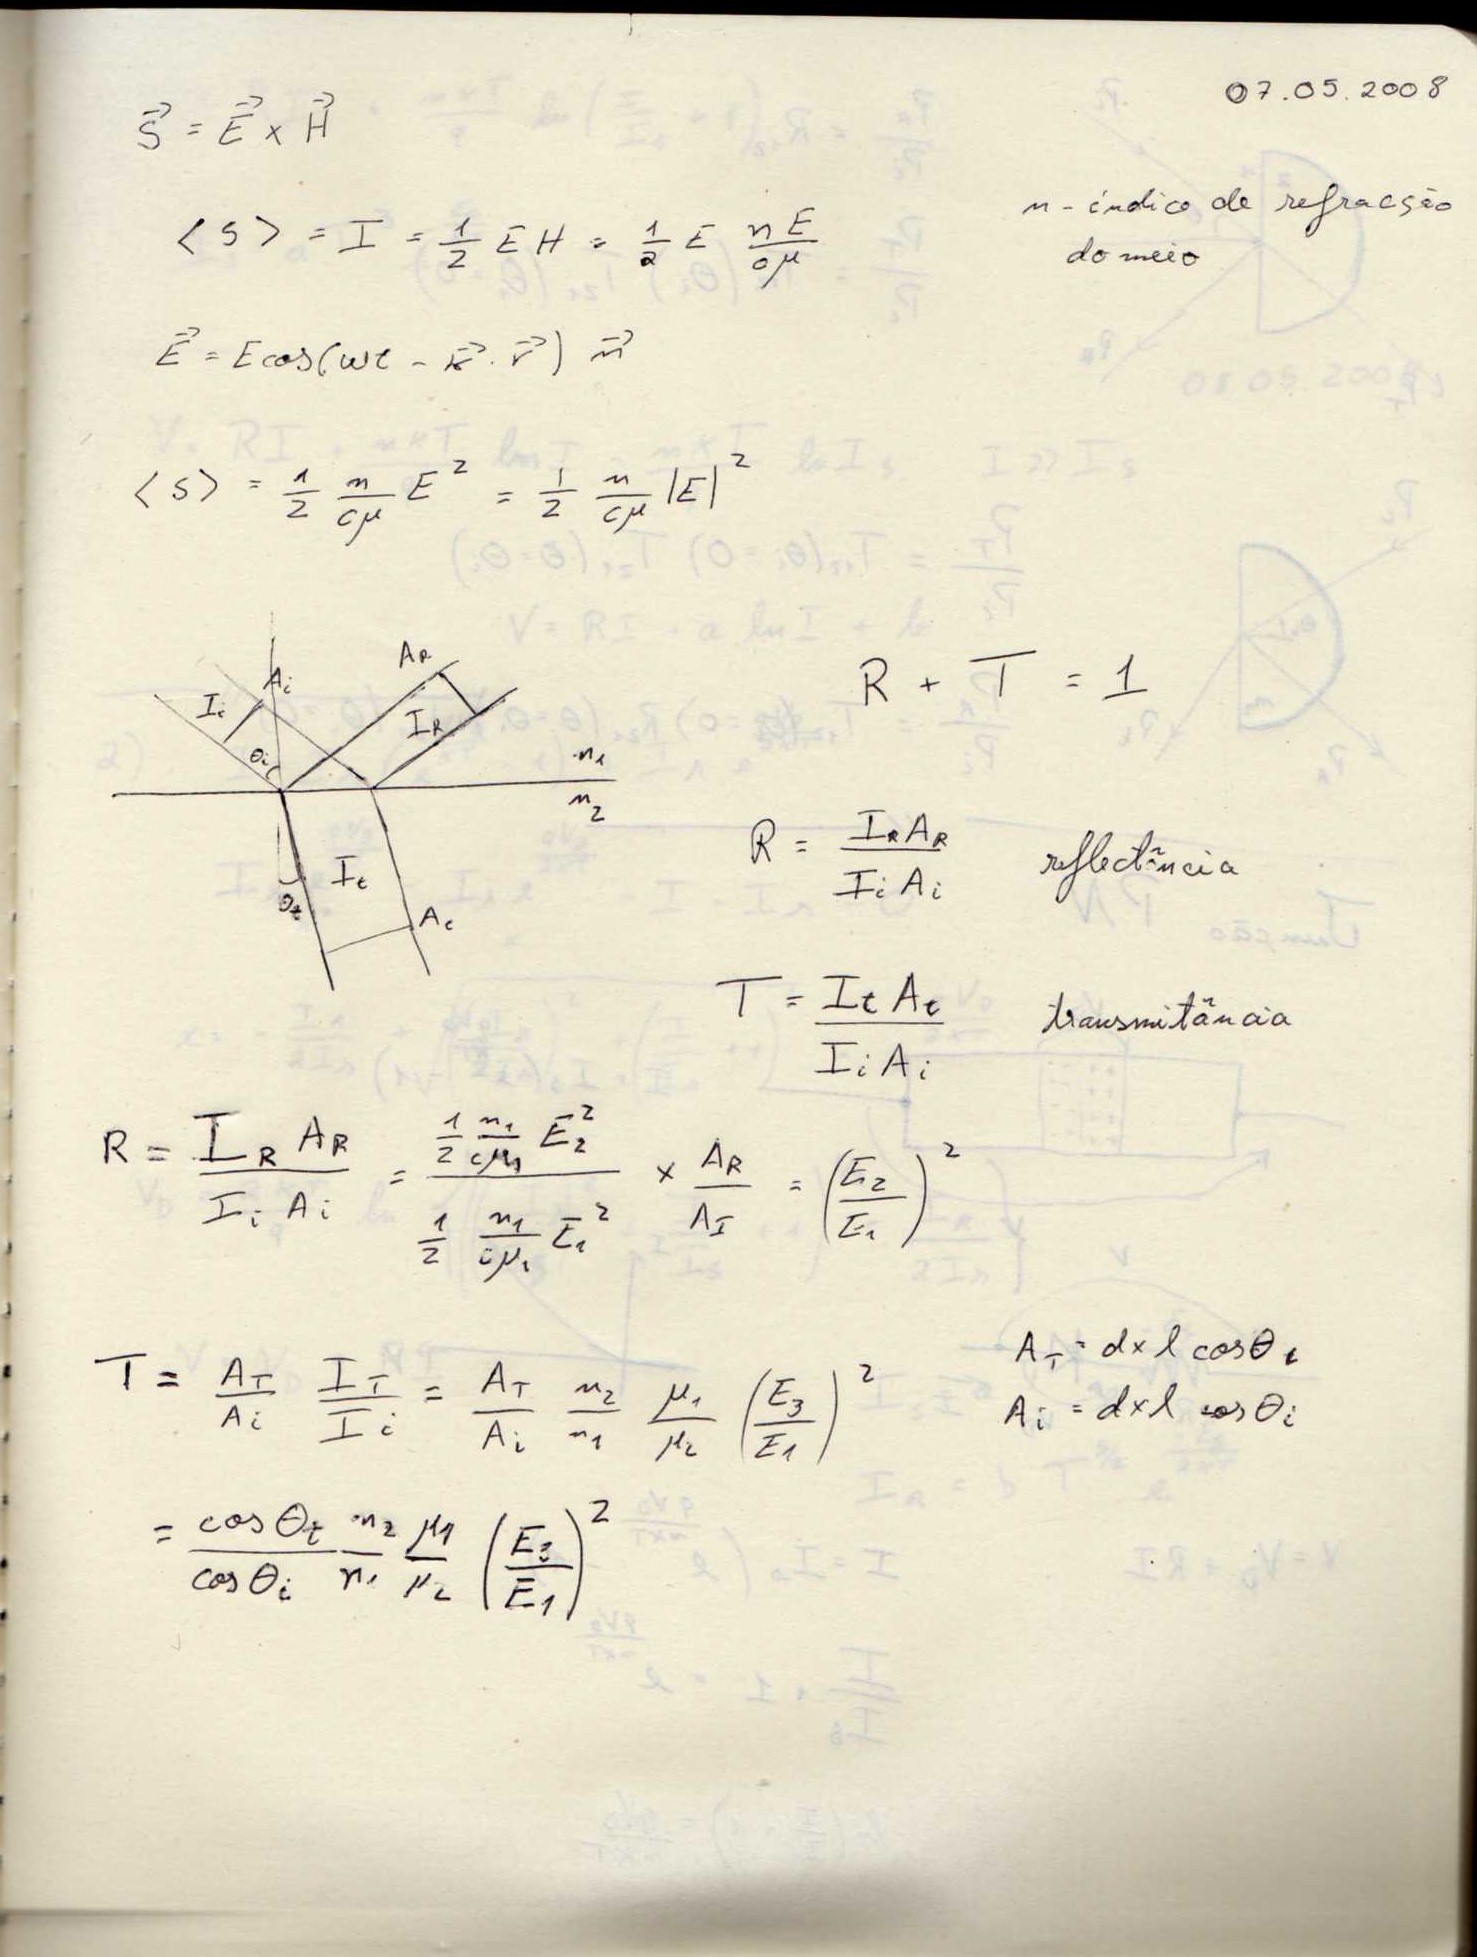 07.05.2008
S⃗ = E⃗ x H⃗
<S> = I = 1/2 E H = 1/2 E nE/cμ
n - índice de refracção
do meio
E⃗ = E cos(ωt - k⃗ . r⃗) n⃗
<S> = 1/2 n/cμ E² = 1/2 n/cμ |E|²
Ai AR
Ii IR
θi n1
n2
It
θt At
R + T = 1
R = IR AR / Ii Ai reflectância
T = It At / Ii Ai transmitância
R = IR AR / Ii Ai = (1/2 n1/cμ1 E2²) / (1/2 n1/cμ1 E1²) x AR/AI = (E2/E1)²
T = AT/Ai IT/Ii = AT/Ai n2/n1 μ1/μ2 (E3/E1)²
AT = d x l cos θt
Ai = d x l cos θi
= cos θt / cos θi n2/n1 μ1/μ2 (E3/E1)²